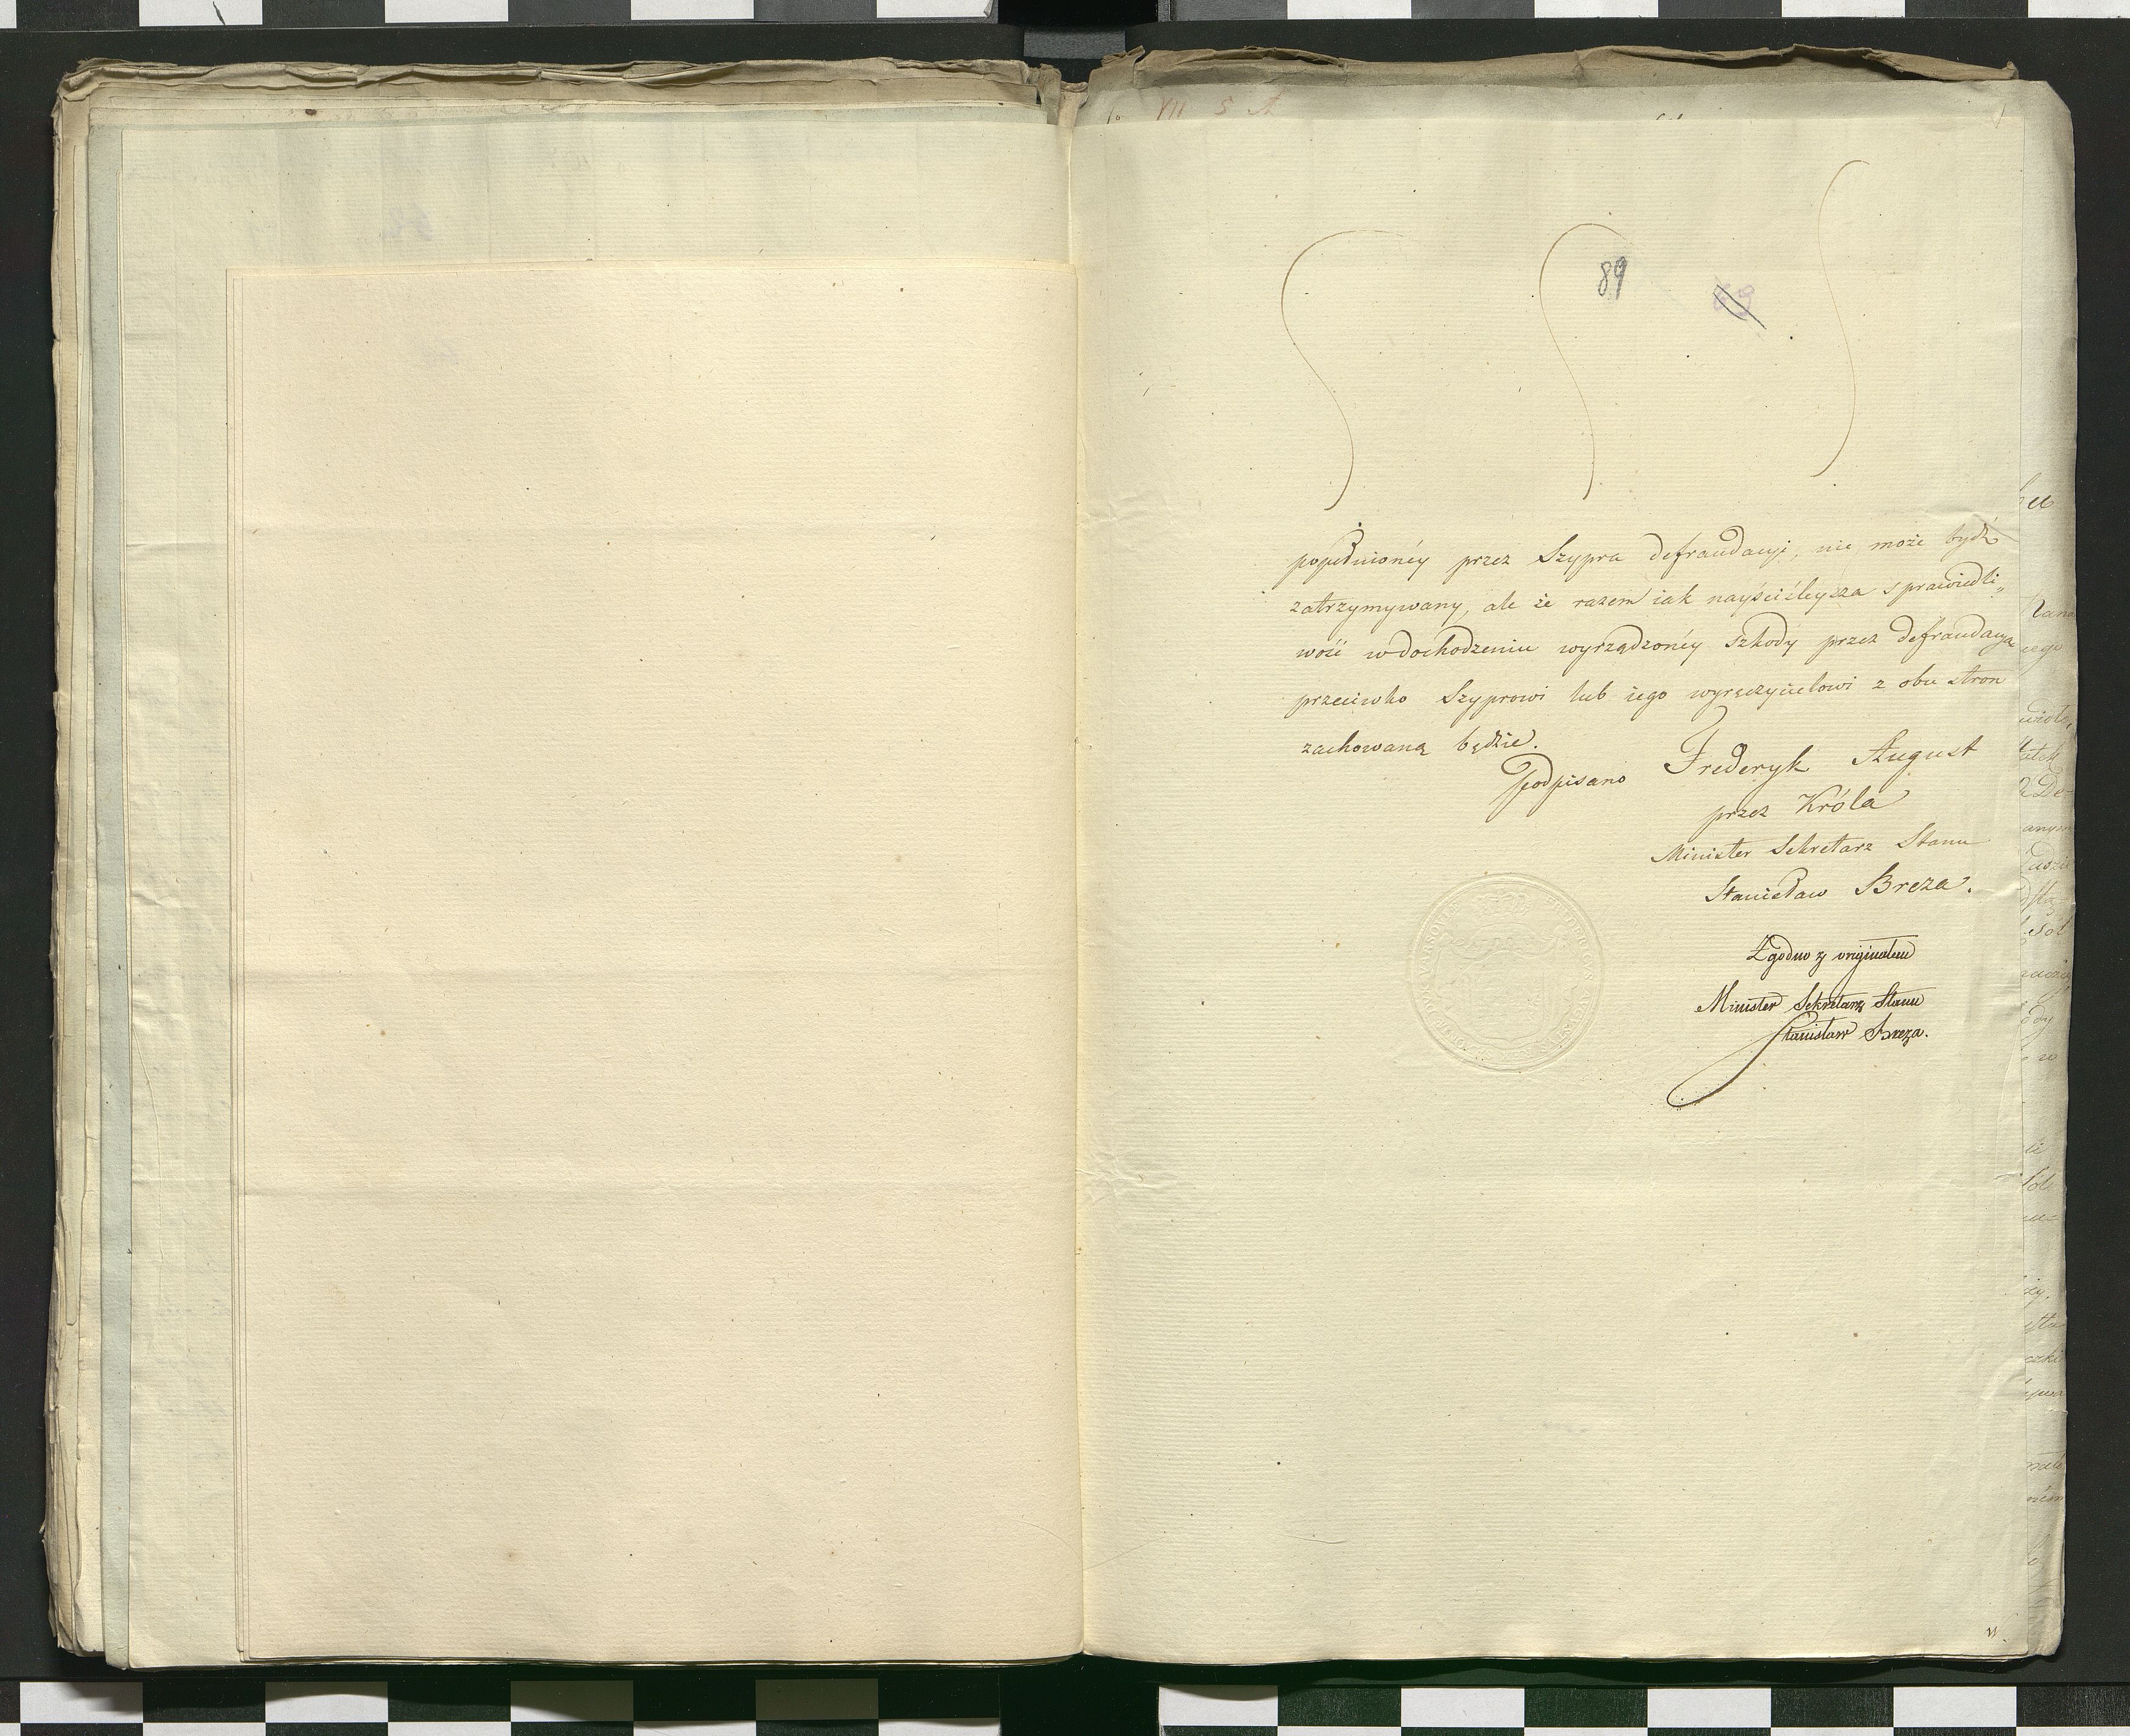 89
69
popełnionéy przez Szypra defraudacyi, nie może bydź
zatrzymywany, ale że razem iak nayściśleysza sprawiedli„
wość w dochodzeniu wyrządzonéy szkody przez defraudacyą
przeciwko Szyprowi lub iego wyręczycielowi z obu stron
zachowaną będzie.
Podpisano Frederyk August
przez Króla
Minister Sekretarz Stanu
Stanisław Breza.
Zgodno z oryginałem
Minister Sekretarz Stanu
Stanisław Breza.